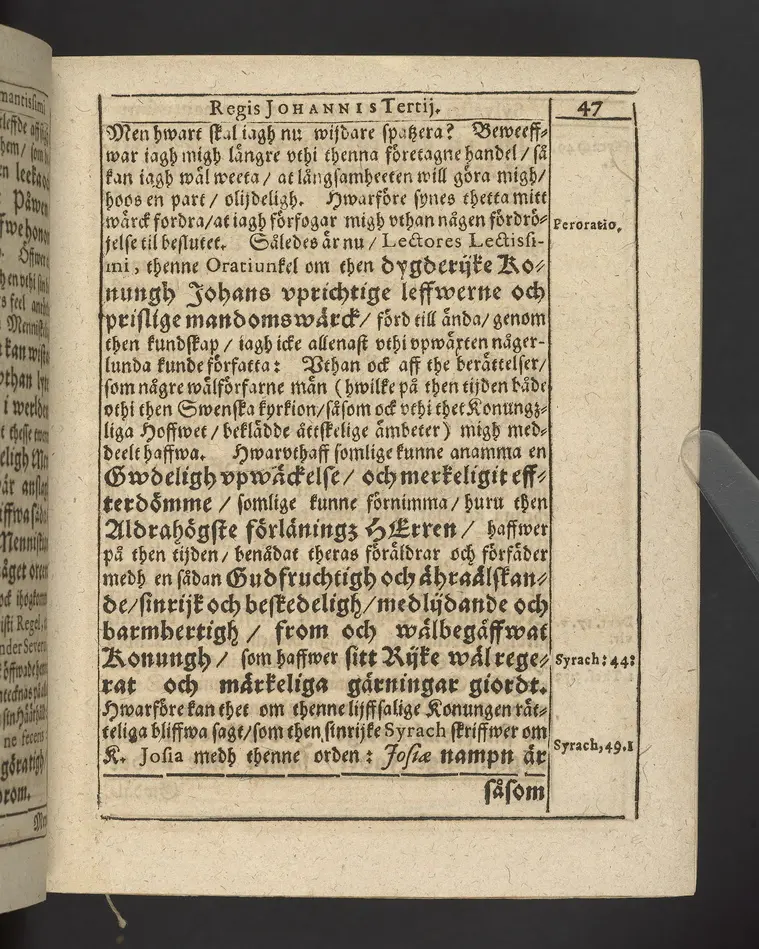 Regis JOHANNIS Tertij. 47
Men hwart skal iagh nu wijdare spatzera? Beweeff⸗
war iagh migh längre vthi thenna företagne handel/ så
kan iagh wäl weeta/ at långsamheeten will göra migh/
hoos en part/ olijdeligh. Hwarföre synes thetta mitt
wärck fordra/at iagh förfogar migh vthan någen fördrö⸗
jelse til beslutet. Således är nu/ Lectores Lectissi-
Peroratio.
mi, thenne Oratiunkel om then dygderijke Ko⸗
nungh Johans vprichtige leffwerne och
prislige mandomswärck/ förd till ända/ genom
then kundskap/ iagh icke allenast vthi vpwäxten någer⸗
lunda kunde författa: Vthan ock aff the berättelser/
som någre wälförfarne män (hwilke på then tijden både
vthi then Swenska kyrkion/såsom ock vthi thet Konungz⸗
liga Hoffwet/ beklädde åttskelige ämbeter) migh med⸗
deelt haffwa. Hwarvthaff somlige kunne anamma en
Gwdeligh vpwäckelse/ och merkeligit eff⸗
terdömme/ somlige kunne förnimma/ huru then
Aldrahögste förläningz HErren/ haffwer
på then tijden/ benådat theras föräldrar och förfäder
medh en sådan Gudfruchtigh och ähraälskan⸗
de/sinrijk och beskedeligh/medlijdande och
barmhertigh/ from och wälbegåffwat
Konungh/ som haffwer sitt Rijke wäl rege⸗
Syrach: 44:
rat och märkeliga gärningar giordt.
Hwarföre kan thet om thenne lijffsalige Konungen rät⸗
teliga bliffwa sagt/som then sinrijke Syrach skriffwer om
K. Josia medh thenne orden: Josiæ nampn är
Syrach, 49.1
såsom